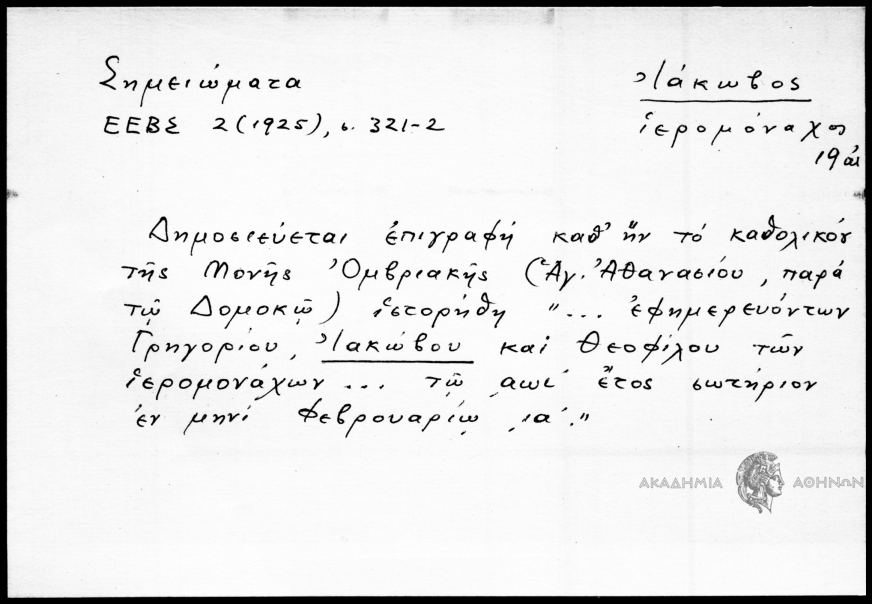 Σημειώματα
ΕΕΒΣ 2 (1925), σ. 321-2
Ἰάκωβος
ἱερομόναχος
19 αἰ
Δημοσιεύεται ἐπιγραφή καθ' ἥν τό καθολικόν
τῆς Μονῆς Ὀμβριακῆς (Ἁγ. Ἀθανασίου, παρά
τῷ Δομοκῷ) ἱστορήθη "... ἐφημερευόντων
Γρηγορίου, Ἰακώβου καί Θεοφίλου τῶν
ἱερομονάχων ... τῷ ͵αωι' ἔτος σωτήριον
ἐν μηνί Φεβρουαρίῳ ια'."
ΑΚΑΔΗΜΙΑ ΑΘΗΝΩΝ